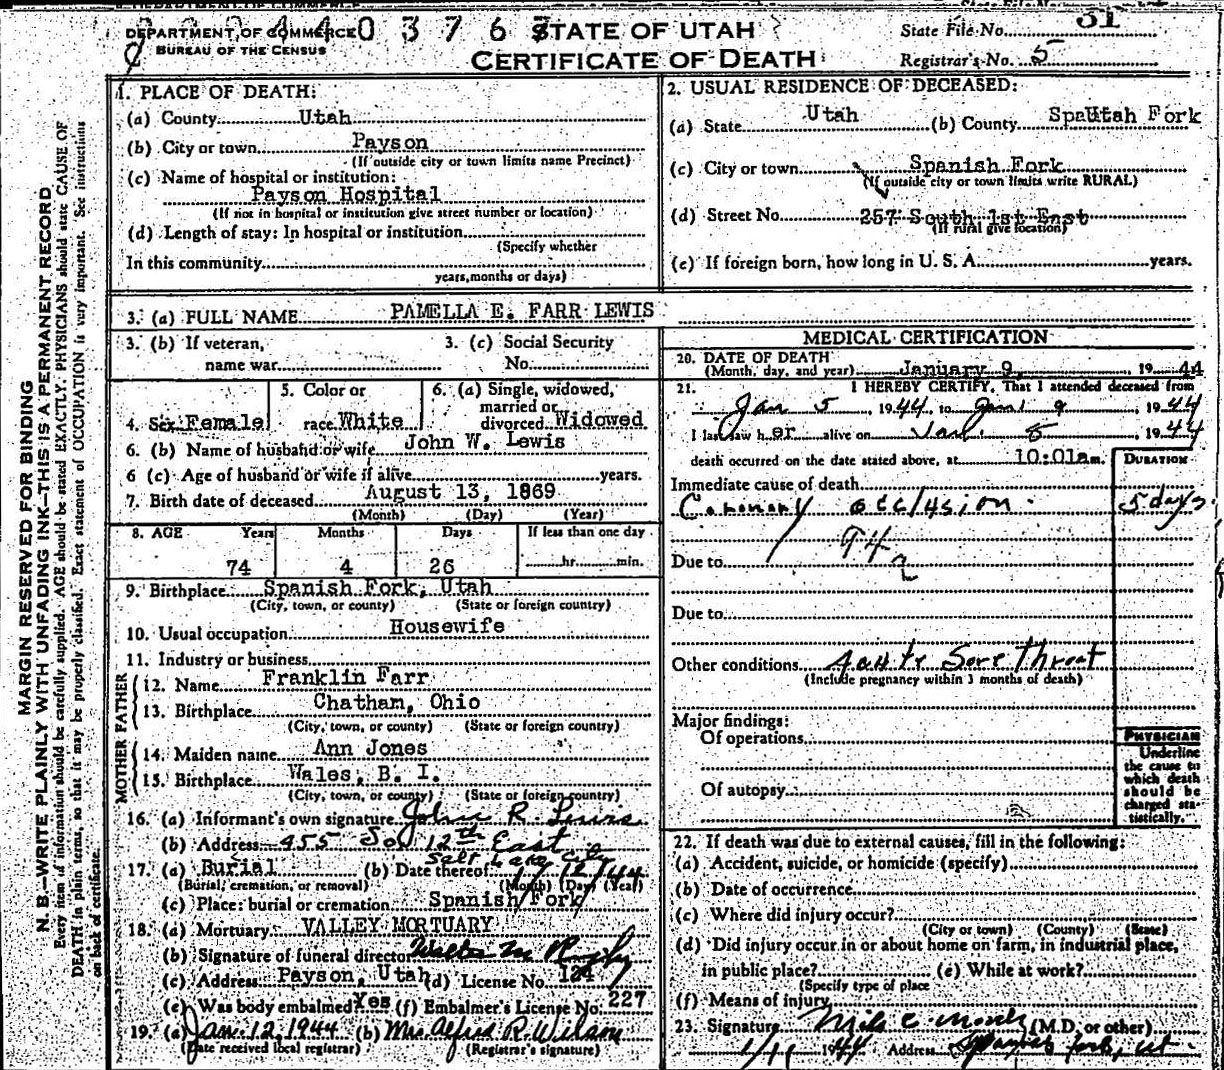 DEPARTMENT OF COMMERCE
BUREAU OF THE CENSUS
STATE OF UTAH
CERTIFICATE OF DEATH
State File No. 31
Registrar's No. 5
MARGIN RESERVED FOR BINDING
N. B.—WRITE PLAINLY WITH UNFADING INK—THIS IS A PERMANENT RECORD
Every item of information should be carefully supplied. AGE should be stated EXACTLY. PHYSICIANS should state CAUSE OF
DEATH in plain terms, so that it may be properly classified. Exact statement of OCCUPATION is very important. See instructions
on back of certificate.
1. PLACE OF DEATH:
(a) County Utah
(b) City or town Payson
(If outside city or town limits name Precinct)
(c) Name of hospital or institution:
Payson Hospital
(If not in hospital or institution give street number or location)
(d) Length of stay: In hospital or institution
(Specify whether
In this community
years, months or days)
2. USUAL RESIDENCE OF DECEASED:
(a) State Utah (b) County Utah
(c) City or town Spanish Fork
(If outside city or town limits write RURAL)
(d) Street No. 257 South 1st East
(If rural give location)
(e) If foreign born, how long in U. S. A. years.
3. (a) FULL NAME PAMELLA E. FARR LEWIS
3. (b) If veteran, name war
3. (c) Social Security No.
4. Sex Female
5. Color or race White
6. (a) Single, widowed, married or divorced Widowed
6. (b) Name of husband or wife John W. Lewis
6 (c) Age of husband or wife if alive years.
7. Birth date of deceased August 13, 1869
(Month) (Day) (Year)
8. AGE Years Months Days If less than one day
74 4 26 hr. min.
9. Birthplace Spanish Fork, Utah
(City, town, or county) (State or foreign country)
10. Usual occupation Housewife
11. Industry or business
FATHER
12. Name Franklin Farr
13. Birthplace Chatham, Ohio
(City, town, or county) (State or foreign country)
MOTHER
14. Maiden name Ann Jones
15. Birthplace Wales, B. I.
(City, town, or county) (State or foreign country)
16. (a) Informant's own signature John R. Lewis
(b) Address 455 So 12th East
Salt Lake City
17. (a) Burial (b) Date thereof 1/12/44
(Burial, cremation, or removal) (Month) (Day) (Year)
(c) Place: burial or cremation Spanish Fork
18. (a) Mortuary VALLEY MORTUARY
(b) Signature of funeral director Walter M Rigby
(c) Address Payson, Utah (d) License No. 124
(e) Was body embalmed Yes (f) Embalmer's License No. 227
19. (a) Jan. 12, 1944 (b) Mrs. Alfred R. Wilson
(Date received local registrar) (Registrar's signature)
MEDICAL CERTIFICATION
20. DATE OF DEATH
(Month, day, and year) January 9, 1944
21. I HEREBY CERTIFY, That I attended deceased from
Jan 5, 1944, to Jan 9, 1944
I last saw her alive on Jan. 8, 1944
death occurred on the date stated above, at 10:01am. DURATION
Immediate cause of death
Coronary occlusion 5 days
94a
Due to
Due to
Other conditions Acute Sore Throat
(Include pregnancy within 3 months of death)
Major findings:
Of operations
Of autopsy
PHYSICIAN
Underline
the cause to
which death
should be
charged sta-
tistically.
22. If death was due to external causes, fill in the following:
(a) Accident, suicide, or homicide (specify)
(b) Date of occurrence
(c) Where did injury occur?
(City or town) (County) (State)
(d) Did injury occur in or about home on farm, in industrial place,
in public place? (e) While at work?
(Specify type of place
(f) Means of injury
23. Signature (M.D. or other)
1/11 1944 Address Spanish Fork, Ut